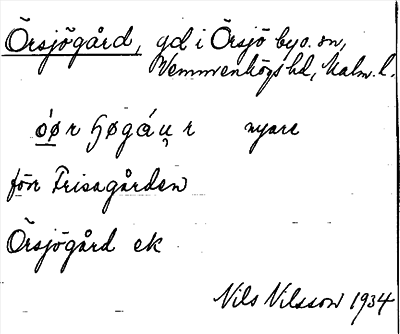 Örsjögård, gd i Örsjö by o. sn,
Vemmenhögs hd, Malm. l.
nyare
förr Frisagården
Örsjögård ek
Nils Nilsson 1934